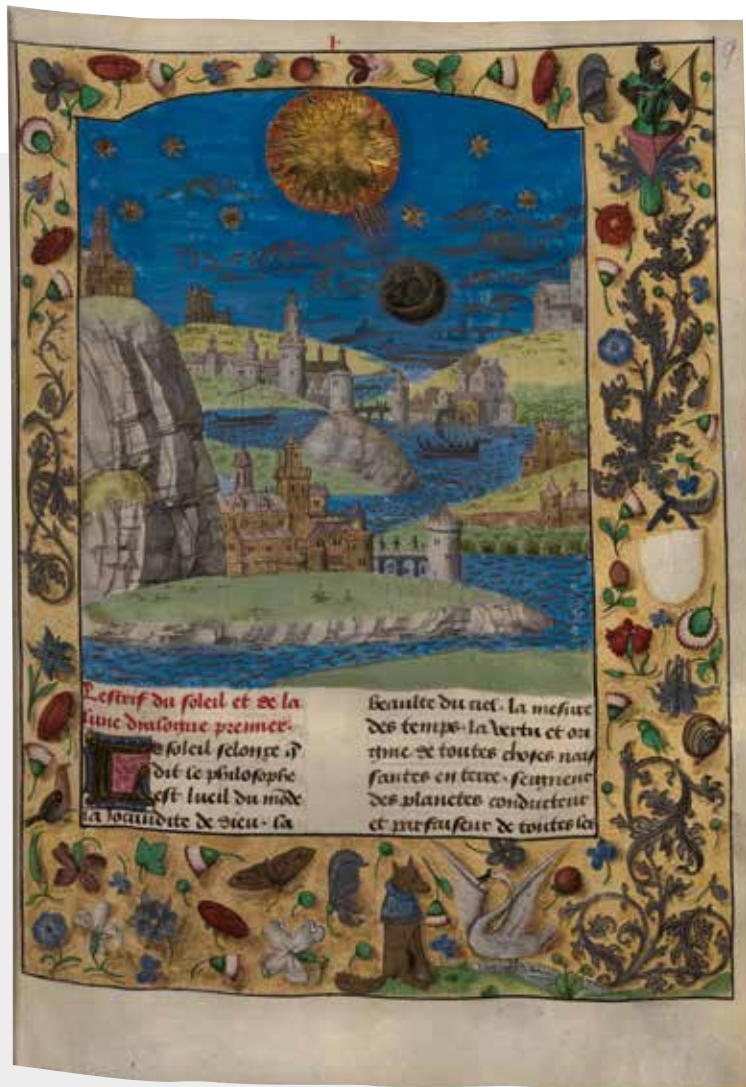 9
Lestrif du soleil et de la
lune dyalogue premier·
Le soleil selonc q̄
dit le philosophe
est lueil du mōde
la iocundite de dieu· la
beaulte du ciel· la mesure
des temps· la vertu et ori
gine de toutes choses nais
santes en terre· seigneur
des planetes conducteur
et parfaiseur de toutes les